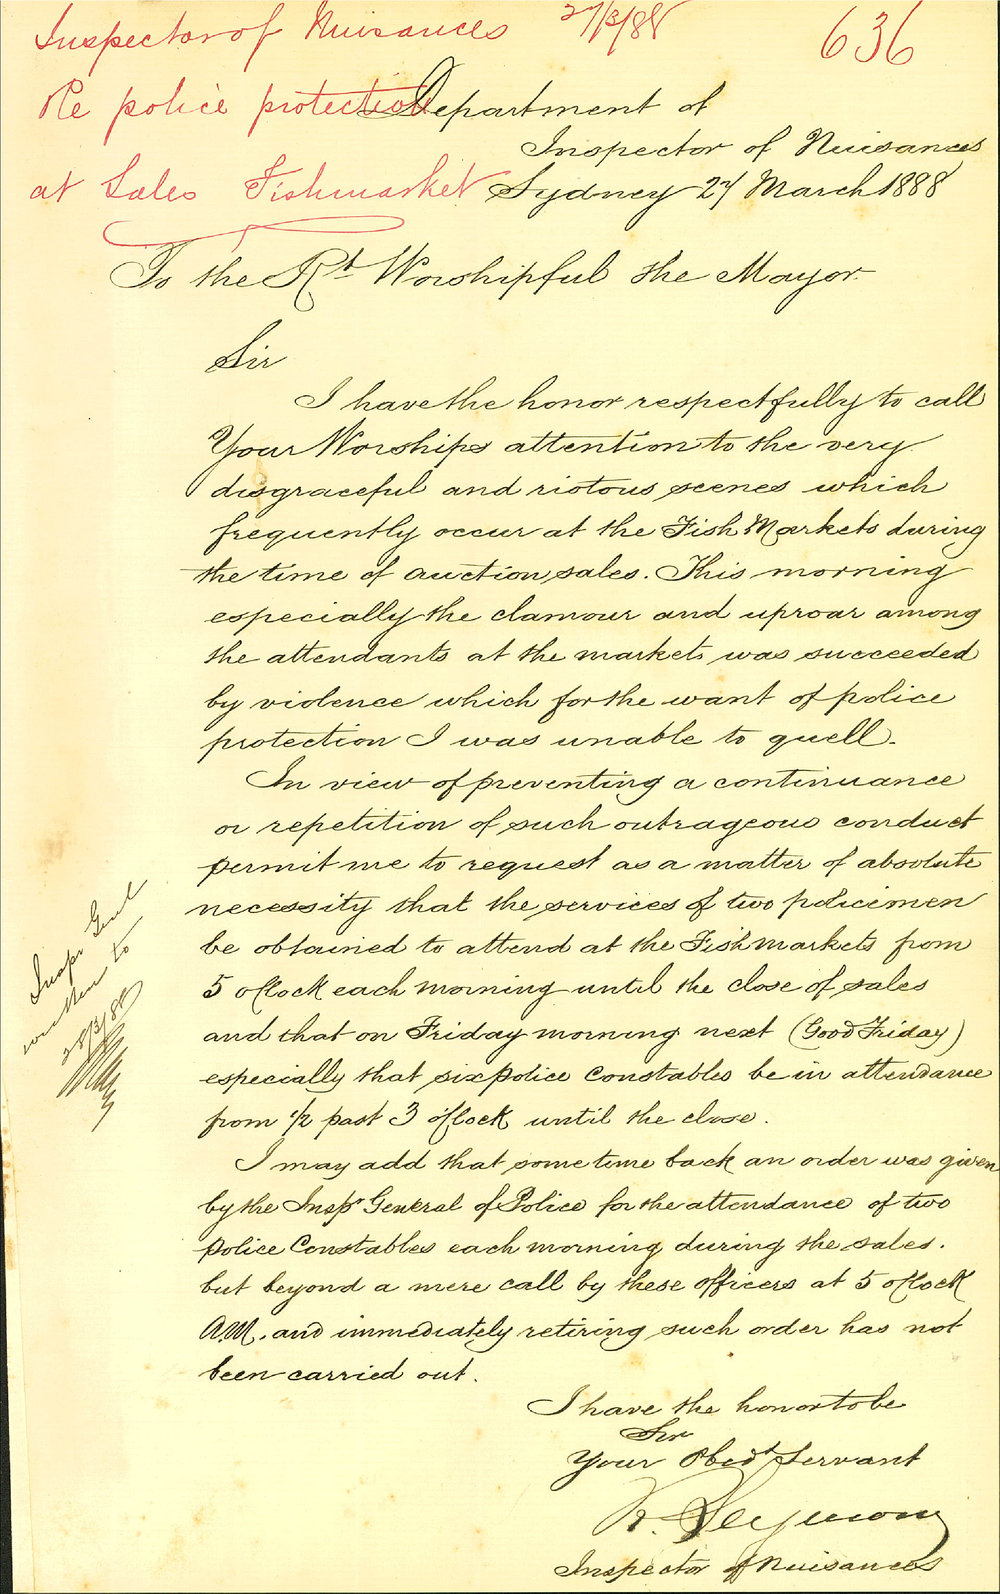 Inspector of Nuisances 27/3/88
636
Re police protection
at Sales Fishmarket
Department of
Inspector of Nuisances
Sydney 27 March 1888
To the Rt Worshipful the Mayor
Sir
I have the honor respectfully to call
Your Worships attention to the very
disgraceful and riotous scenes which
frequently occur at the Fish Markets during
the time of auction sales. This morning
especially the clamour and uproar among
the attendants at the markets was succeeded
by violence which for the want of police
protection I was unable to quell.
In view of preventing a continuance
or repetition of such outrageous conduct
permit me to request as a matter of absolute
necessity that the services of two policemen
be obtained to attend at the Fishmarkets from
5 o'Clock each morning until the close of sales
and that on Friday morning next (Good Friday)
especially that six police Constables be in attendance
from 1/2 past 3 o'Clock until the close.
I may add that some time back an order was given
by the Inspr General of Police for the attendance of two
police Constables each morning during the sales.
but beyond a mere call by these officers at 5 o'Clock
A.M. and immediately retiring such order has not
been carried out.
I have the honor to be
Sir
Your Obedt Servant
R. Seymour
Inspector of Nuisances
Inspr Genl
written to
28/3/88